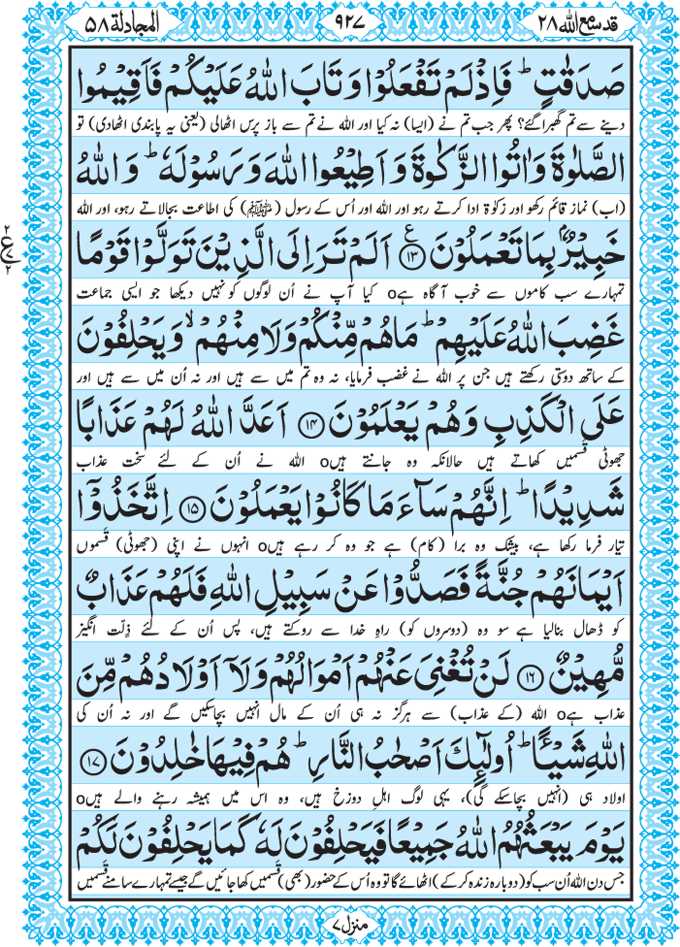 قد سمع الله ٢٨
٩٢٧
المجادلة ٥٨
صَدَقٰتٍ ؕ فَاِذْ لَمْ تَفْعَلُوْا وَتَابَ اللّٰهُ عَلَيْكُمْ فَاَقِيْمُوا
دینے سے تم گھبرا گئے؟ پھر جب تم نے (ایسا) نہ کیا اور اللہ نے تم سے باز پرس اٹھا لی (یعنی یہ پابندی اٹھا دی) تو
الصَّلٰوةَ وَاٰتُوا الزَّكٰوةَ وَاَطِيْعُوا اللّٰهَ وَرَسُوْلَهٗ ؕ وَاللّٰهُ
(اب) نماز قائم رکھو اور زکوٰۃ ادا کرتے رہو اور اللہ اور اُس کے رسول (ﷺ) کی اطاعت بجا لاتے رہو، اور اللہ
خَبِيْرٌۢ بِمَا تَعْمَلُوْنَ ﴿۱۳﴾ ع اَلَمْ تَرَ اِلَى الَّذِيْنَ تَوَلَّوْا قَوْمًا
٢ ع ٢
تمہارے سب کاموں سے خوب آگاہ ہے o کیا آپ نے اُن لوگوں کو نہیں دیکھا جو ایسی جماعت
غَضِبَ اللّٰهُ عَلَيْهِمْ ؕ مَا هُمْ مِّنْكُمْ وَلَا مِنْهُمْ ۙ وَيَحْلِفُوْنَ
کے ساتھ دوستی رکھتے ہیں جن پر اللہ نے غضب فرمایا، نہ وہ تم میں سے ہیں اور نہ اُن میں سے ہیں اور
عَلَى الْكَذِبِ وَهُمْ يَعْلَمُوْنَ ﴿۱۴﴾ اَعَدَّ اللّٰهُ لَهُمْ عَذَابًا
جھوٹی قَسمیں کھاتے ہیں حالانکہ وہ جانتے ہیں o اللہ نے اُن کے لئے سخت عذاب
شَدِيْدًا ؕ اِنَّهُمْ سَآءَ مَا كَانُوْا يَعْمَلُوْنَ ﴿۱۵﴾ اِتَّخَذُوْٓا
تیار فرما رکھا ہے، بیشک وہ برا (کام) ہے جو وہ کر رہے ہیں o انہوں نے اپنی (جھوٹی) قَسموں
اَيْمَانَهُمْ جُنَّةً فَصَدُّوْا عَنْ سَبِيْلِ اللّٰهِ فَلَهُمْ عَذَابٌ
کو ڈھال بنا لیا ہے سو وہ (دوسروں کو) راہِ خدا سے روکتے ہیں، پس اُن کے لئے ذِلّت انگیز
مُّهِيْنٌ ﴿۱۶﴾ لَنْ تُغْنِيَ عَنْهُمْ اَمْوَالُهُمْ وَلَآ اَوْلَادُهُمْ مِّنَ
عذاب ہے o اللہ (کے عذاب) سے ہرگز نہ ہی اُن کے مال انہیں بچا سکیں گے اور نہ اُن کی
اللّٰهِ شَيْـًٔا ؕ اُولٰٓئِكَ اَصْحٰبُ النَّارِ ؕ هُمْ فِيْهَا خٰلِدُوْنَ ﴿۱۷﴾
اولاد ہی (انہیں بچا سکے گی)، یہی لوگ اہلِ دوزخ ہیں، وہ اس میں ہمیشہ رہنے والے ہیں o
يَوْمَ يَبْعَثُهُمُ اللّٰهُ جَمِيْعًا فَيَحْلِفُوْنَ لَهٗ كَمَا يَحْلِفُوْنَ لَكُمْ
جس دن اللہ اُن سب کو (دوبارہ زندہ کر کے) اٹھائے گا تو وہ اُس کے حضور (بھی) قَسمیں کھا جائیں گے جیسے تمہارے سامنے قَسمیں
منزل ٧